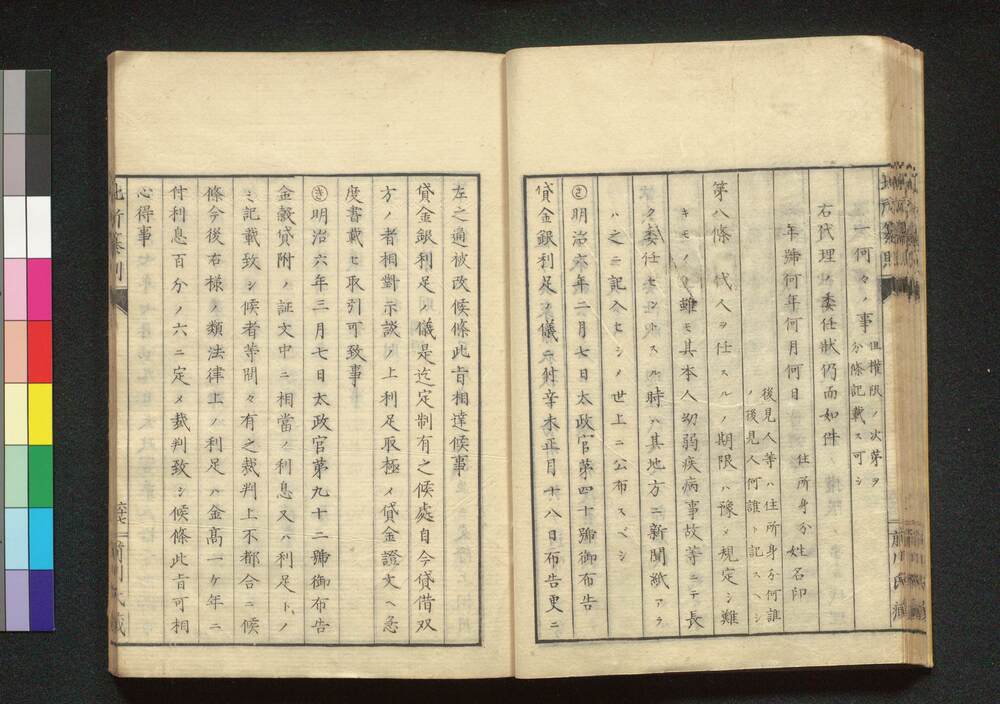 一何々ノ事 但權限ノ次第ヲ
分條記載ス可シ
右代理ノ委任狀仍而如件
年號何年何月何日 住所身分姓名印
後見人等ハ住所身分何誰
ノ後見人何誰ト記スヘシ
第八條 代人ヲ任スルノ期限ハ豫メ規定シ難
キモノト雖モ其本人幼弱疾病事故等ニテ長
ク委任セントスル時ハ其地方ニ新聞紙アラ
ハ之ニ記入セシメ世上ニ公布スベシ
明治六年二月七日太政官第四十號御布告
貸金銀利足ノ儀ニ付辛未正月十八日布告更ニ
左之通被改候條此旨相達候事
貸金銀利足ノ儀是迄定制有之候處自今貸借双
方ノ者相對示談ノ上利足取極メ貸金證文ヘ急
度書載セ取引可致事
明治六年三月七日太政官第九十二號御布告
金穀貸附ノ証文中ニ相當ノ利息又ハ利足トノ
ミ記載致シ候者等間々有之裁判上不都合ニ候
條今後右樣ノ類法律上ノ利足ハ金高一ケ年ニ
付利息百分ノ六ニ定メ裁判致シ候條此旨可相
心得事